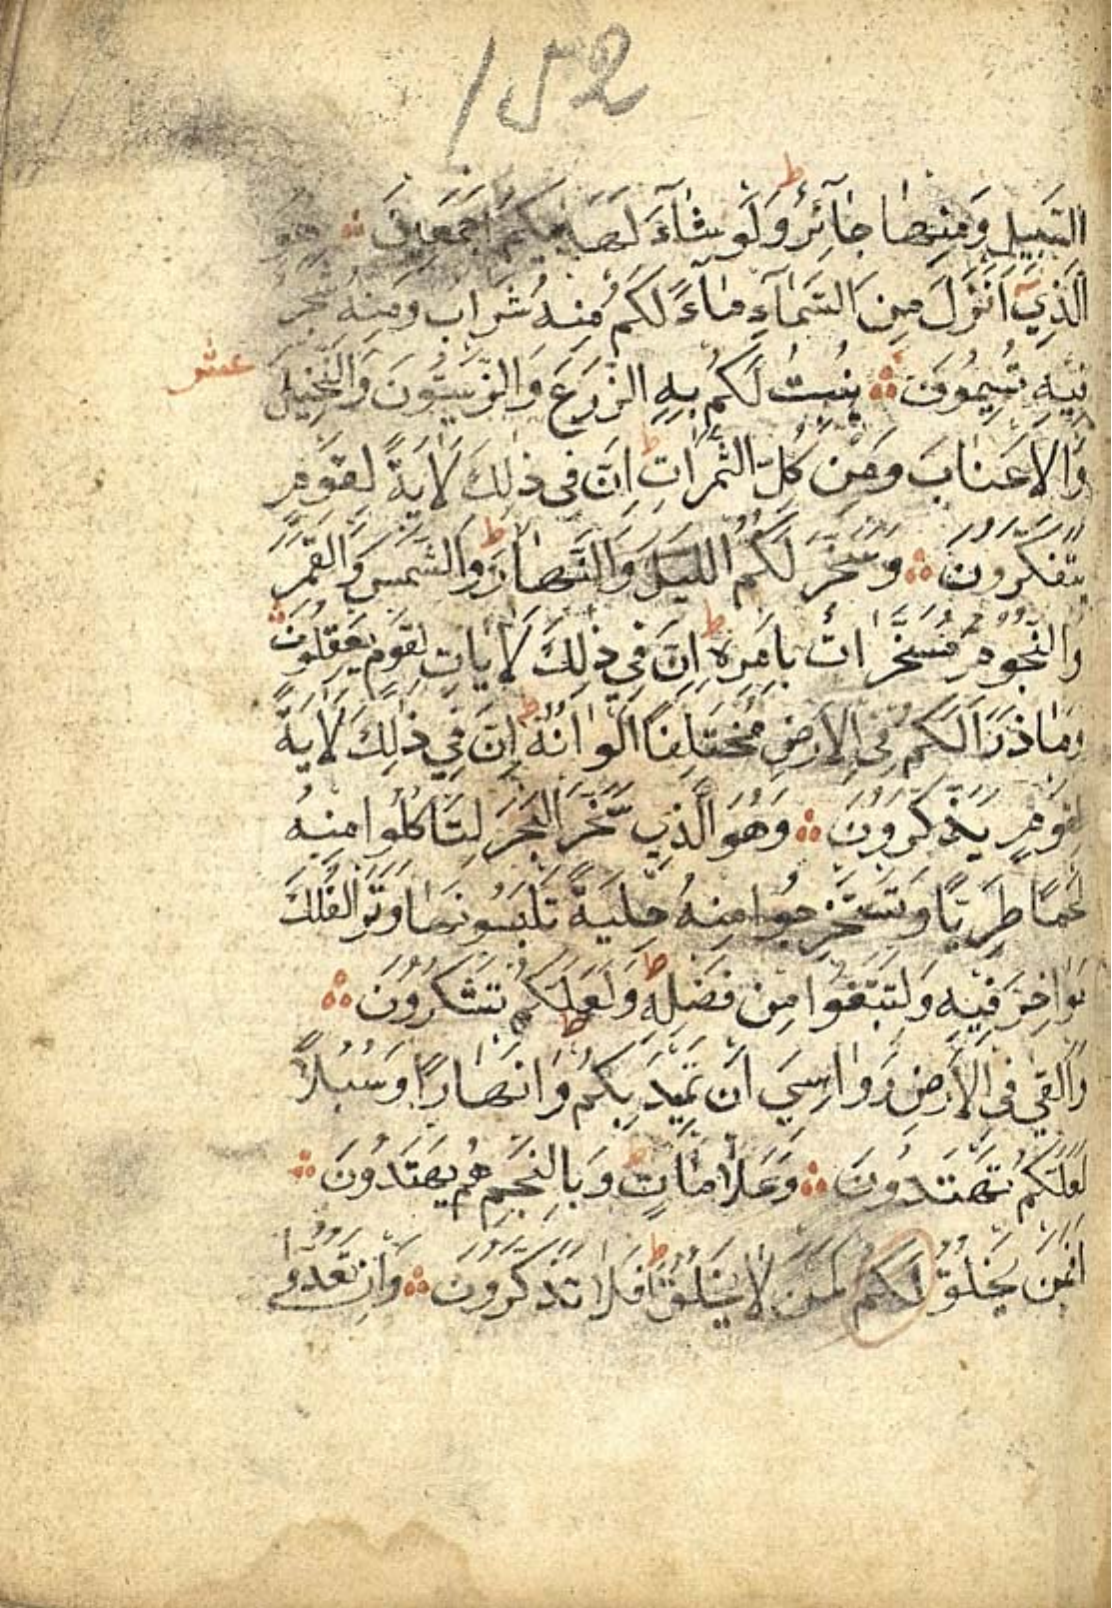 152
السَّبِيلِ وَمِنْهَا جَائِرٌ ط وَلَوْ شَآءَ لَهَدٰيكُمْ اَجْمَعِينَ ۞ هُوَ
الَّذِي اَنْزَلَ مِنَ السَّمَآءِ مَآءً لَكُمْ مِنْهُ شَرَابٌ وَمِنْهُ شَجَرٌ
عشر
فِيهِ تُسِيمُونَ ۞ يُنْبِتُ لَكُمْ بِهِ الزَّرْعَ وَالزَّيْتُونَ وَالنَّخِيلَ
وَالْاَعْنَابَ وَمِنْ كُلِّ الثَّمَرَاتِ ط اِنَّ فِى ذٰلِكَ لَاٰيَةً لِقَوْمٍ
يَتَفَكَّرُونَ ۞ وَسَخَّرَ لَكُمُ اللَّيْلَ وَالنَّهَارَ ط وَالشَّمْسَ وَالْقَمَرَ
وَالنُّجُومُ مُسَخَّرَاتٌ بِاَمْرِهِ ط اِنَّ فِي ذٰلِكَ لَاٰيَاتٍ لِقَوْمٍ يَعْقِلُونَ ۞
وَمَا ذَرَاَ لَكُمْ فِى الْاَرْضِ مُخْتَلِفًا اَلْوَانُهُ ط اِنَّ فِي ذٰلِكَ لَاٰيَةً
لِقَوْمٍ يَذَّكَّرُونَ ۞ وَهُوَ الَّذِي سَخَّرَ الْبَحْرَ لِتَاْكُلُوا مِنْهُ
لَحْمًا طَرِيًّا وَتَسْتَخْرِجُوا مِنْهُ حِلْيَةً تَلْبَسُونَهَا وَتَرَى الْفُلْكَ
مَوَاخِرَ فِيهِ وَلِتَبْتَغُوا مِنْ فَضْلِهِ ط وَلَعَلَّكُمْ تَشْكُرُونَ ۞
وَاَلْقٰى فِى الْاَرْضِ رَوَاسِيَ اَنْ تَمِيدَ بِكُمْ ط وَاَنْهَارًا وَسُبُلًا
لَعَلَّكُمْ تَهْتَدُونَ ۞ وَعَلَامَاتٍ ط وَبِالنَّجْمِ هُمْ يَهْتَدُونَ ۞
اَفَمَنْ يَخْلُقُ لَكُمْ كَمَنْ لَا يَخْلُقُ ط اَفَلَا تَذَكَّرُونَ ۞ وَاِنْ تَعُدُّوا